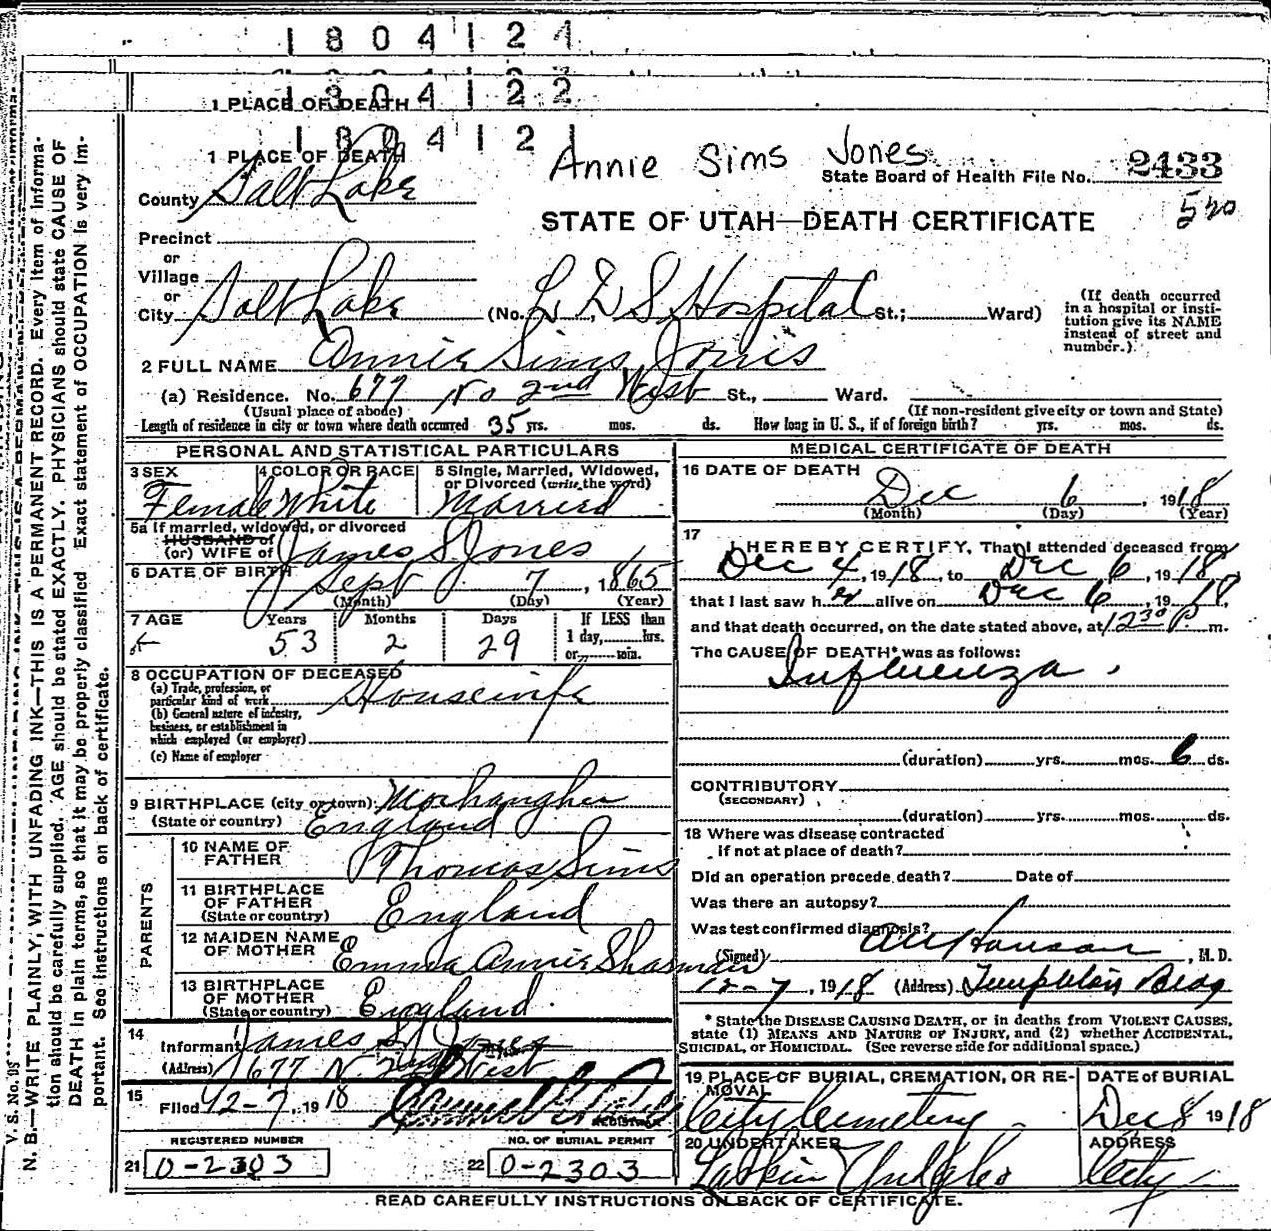 1 8 0 4 1 2 1
1 8 0 4 1 2 2
1 PLACE OF DEATH
1 8 0 4 1 2 1
1 PLACE OF DEATH
Annie Sims Jones
State Board of Health File No. 2433
County Salt Lake
STATE OF UTAH—DEATH CERTIFICATE
520
Precinct
or
Village
or
City Salt Lake (No. L. D. S. Hospital St.; Ward)
(If death occurred in a hospital or institution give its NAME instead of street and number.)
2 FULL NAME Annie Sims Jones
(a) Residence. No. 677 No 2nd West St., Ward.
(Usual place of abode) (If non-resident give city or town and State)
Length of residence in city or town where death occurred 35 yrs. mos. ds. How long in U. S., if of foreign birth? yrs. mos. ds.
PERSONAL AND STATISTICAL PARTICULARS
3 SEX Female
4 COLOR OR RACE White
5 Single, Married, Widowed, or Divorced (write the word) Married
5a If married, widowed, or divorced
HUSBAND of
(or) WIFE of James S. Jones
6 DATE OF BIRTH Sept 7, 1865
(Month) (Day) (Year)
7 AGE Years 53 Months 2 Days 29 If LESS than 1 day, hrs. or min.
8 OCCUPATION OF DECEASED
(a) Trade, profession, or particular kind of work Housewife
(b) General nature of industry, business, or establishment in which employed (or employer)
(c) Name of employer
9 BIRTHPLACE (city or town)
(State or country) England
PARENTS
10 NAME OF FATHER Thomas Sims
11 BIRTHPLACE OF FATHER (State or country) England
12 MAIDEN NAME OF MOTHER Emma Annie Sharman
13 BIRTHPLACE OF MOTHER (State or country) England
14 Informant James S. Jones
(Address) 677 N 2nd West
15 Filed 12-7, 1918
REGISTRAR
REGISTERED NUMBER
21 0-2303
NO. OF BURIAL PERMIT
22 0-2303
MEDICAL CERTIFICATE OF DEATH
16 DATE OF DEATH
Dec 6, 1918
(Month) (Day) (Year)
17
I HEREBY CERTIFY, That I attended deceased from
Dec 4, 1918, to Dec 6, 1918
that I last saw her alive on Dec 6, 1918,
and that death occurred, on the date stated above, at 12 30 P. m.
The CAUSE OF DEATH* was as follows:
Influenza
(duration) yrs. mos. 6 ds.
CONTRIBUTORY
(SECONDARY)
(duration) yrs. mos. ds.
18 Where was disease contracted
if not at place of death?
Did an operation precede death? Date of
Was there an autopsy?
Was test confirmed diagnosis?
(Signed) , M. D.
12-7, 1918 (Address) Templeton Bldg
* State the DISEASE CAUSING DEATH, or in deaths from VIOLENT CAUSES,
state (1) MEANS AND NATURE OF INJURY, and (2) whether ACCIDENTAL,
SUICIDAL, or HOMICIDAL. (See reverse side for additional space.)
19 PLACE OF BURIAL, CREMATION, OR REMOVAL City Cemetery
DATE OF BURIAL Dec 8 1918
20 UNDERTAKER
ADDRESS City
READ CAREFULLY INSTRUCTIONS ON BACK OF CERTIFICATE.
V. S. No.
N. B.—WRITE PLAINLY, WITH UNFADING INK—THIS IS A PERMANENT RECORD. Every item of informa-
tion should be carefully supplied. AGE should be stated EXACTLY. PHYSICIANS should state CAUSE OF
DEATH in plain terms, so that it may be properly classified Exact statement of OCCUPATION is very im-
portant. See instructions on back of certificate.